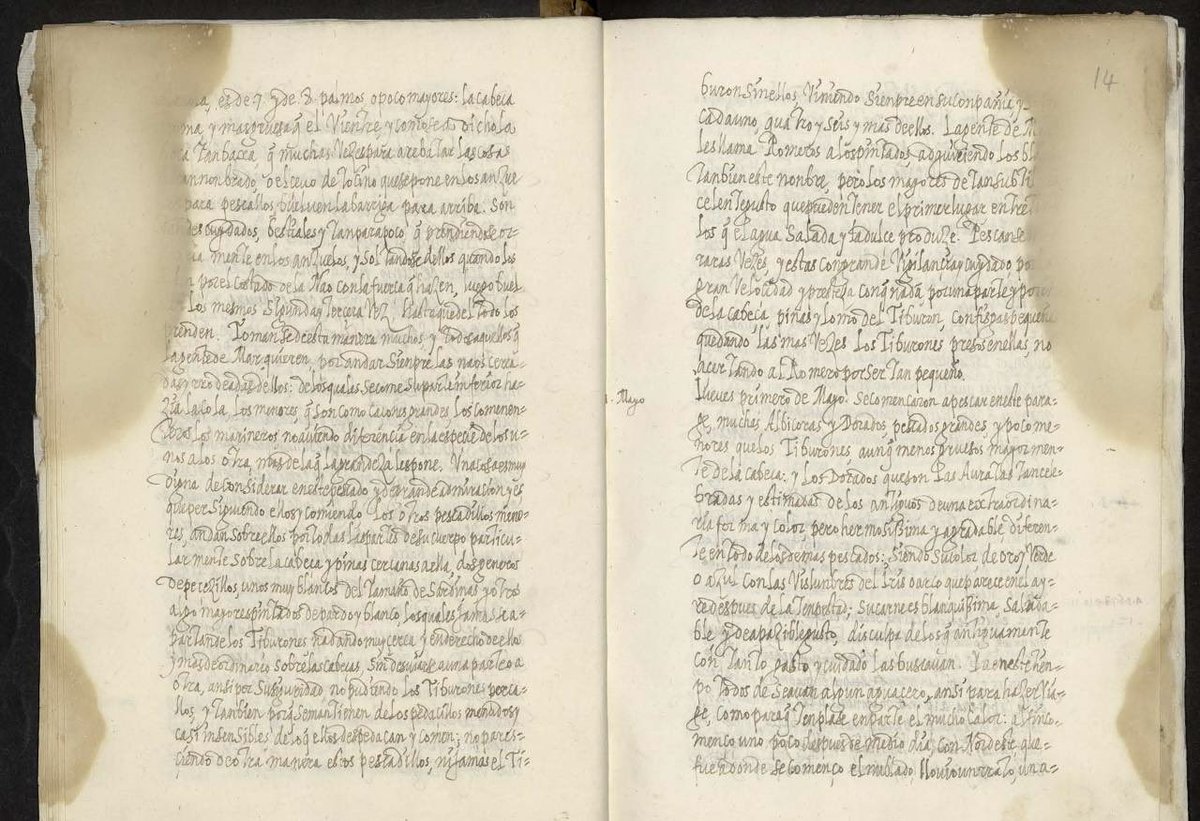 es de 7. y de 8. palmos o poco mayores: La cabeça
y mas gruesa q̃ el Vientre y como sea dicho la
tan baxa q̃ muchas Vezes para arebatar las cosas
nonbrado, o el cevo de tocino que se pone en los anzue
para pescallos buelven la barriga para arriba. Son
descuydados, bestiales y tan para poco q̃ prendiendose or=
mente en los anzuelos, y soltandose dellos quando los
por el Costado de la Nao con la fuerça q̃ hazen, luego buel
los mesmos segunda y tercera Vez, hasta que del todo los
prenden. Tomanse de esta manera muchos, y todos aquellos q̃
la gente de Mar quieren, por andar Siempre las naos cerca=
das y rodeadas dellos: de los quales se come su parte inferior ha=
zia la cola. Los menores q̃ son como caçones grandes los comen en=
teros los marineros no aviendo diferencia en la especie de los u=
nos a los otros, mas de la q̃ la grandeza les pone. Una cosa es muy
digna de considerar en este pescado y de grande admiracion, y es
que persiguiendo ellos y comiendo los otros pescadillos meno=
res, andan sobre ellos por todas las partes de su cuerpo particu=
larmente sobre la cabeça y pinas cercanas a ella, dos generos
de pecezillos unos muy blancos del tamaño de Sardinas, y otros
algo mayores pintados de pardo y blanco, los quales jamas se a=
partan de los Tiburones nadando muy cerca y en derecho de ellos
y mas de ordinario sobre las cabeças, Sin desviarse a una parte o a
otra, ansi por su seguridad no pudiendo los Tiburones pesca=
llos, y tambien porq̃ se mantienen de los pedacillos menudos y
casi insensibles de lo q̃ ellos despedaçan y comen; no pares=
ciendo de otra manera estos pescadillos, ni jamas el Ti=
14
buron sin ellos, Viniendo Siempre en su conpañia y
cada uno, quatro y seis y mas de ellos. La gente de
les llama Romeros a los pintados, adquiriendo los
tanbien este nonbre, pero los mayores de tan
celente gusto que pueden tener el primer lugar entre
los q̃ el agua Salada y la dulce produze. Pescanse
raras Vezes, y estas con grande Vigilancia y cuydado
gran Velocidad y presteza con q̃ nadã por una parte y
de la cabeça, piñas y lomo del Tiburon, con fisgas pequeñas
quedando las mas Vezes los Tiburones presos en ellas, no
acertando al Romero por ser tan pequeño.
1. Mayo
Jueves primero de Mayo. Se començaron a pescar en este para=
ge, muchas Albicoras y Dorados pescados grandes y poco me=
nores que los Tiburones aunq̃ menos gruesos mayormen=
te de la cabeça: y los Dorados que son las Auratas tan cele=
bradas y estimadas de los antiguos de una extraordina=
ria forma y color pero hermosissima y agradable, diferen=
te en todo de los demas pescados: Siendo su color de oro y Verde
o azul con las Vislunbres del Iris o arco que parece en el ay=
re despues de la tenpestad; su carne es blanquissima, Saluda=
ble y de apazible gusto, disculpa de los q̃ antiguamente
con tanto gasto y cuidado las buscavan. Ya en este tien=
po todos deseavan algun aguacero, ansi para hazer Via=
ge, como para q̃ tenplase en parte el mucho calor: al fin co=
menço uno poco despues de medio dia, con Nordeste que=
fue a donde se començo el nublado, llovio un rato, una=